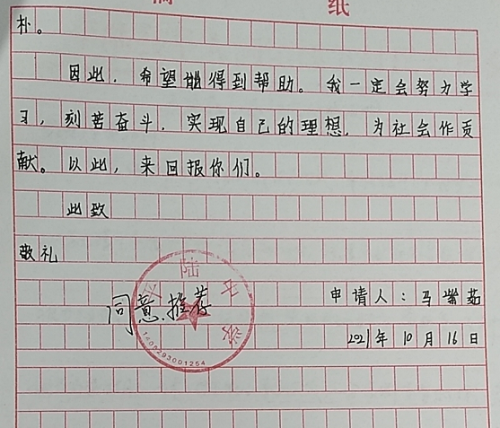 纸
朴。
因此，希望能得到帮助。我一定会努力学
习，刻苦奋斗，实现自己的理想，为社会作贡
献。以此，来回报你们。
此致
敬礼
同意推荐
申请人：马紫茹
2021年10月16日